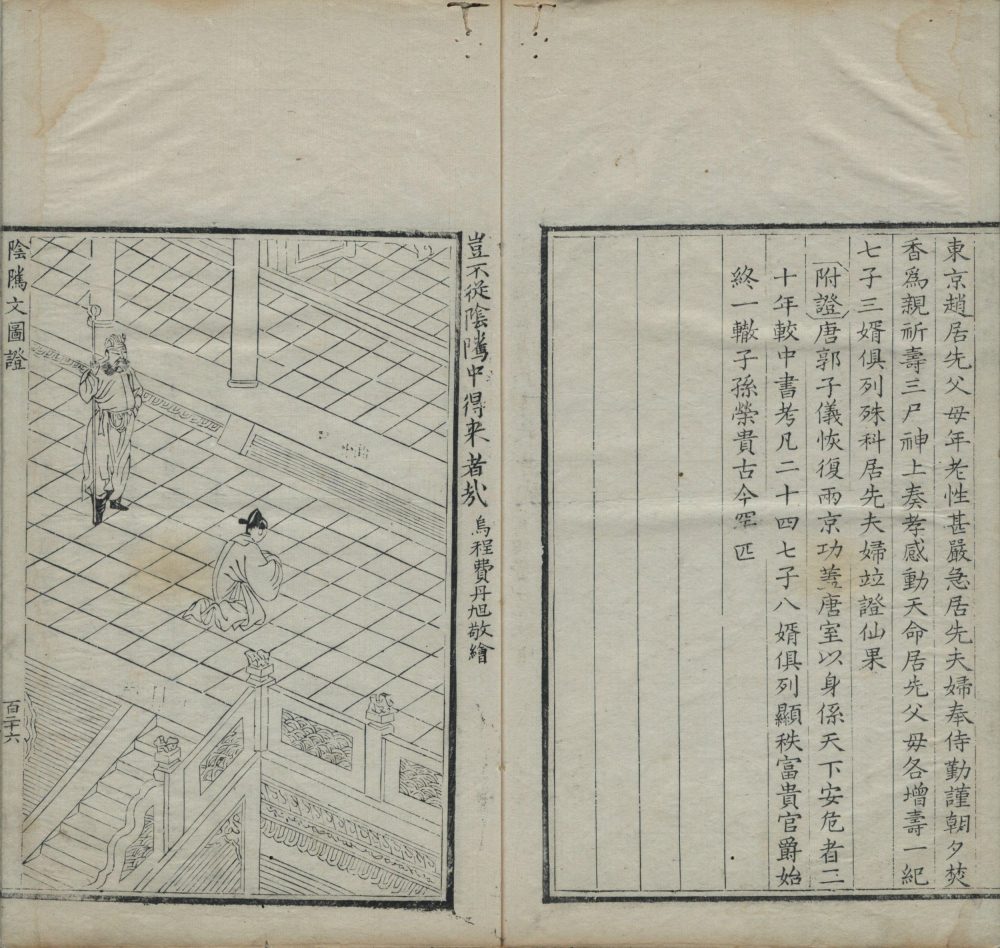 東京趙居先父母年老性甚嚴急居先夫婦奉侍勤謹朝夕焚
香爲親祈壽三尸神上奏孝感動天命居先父母各增壽一紀
七子三婿俱列殊科居先夫婦竝證仙果
附證唐郭子儀恢復兩京功蓋唐室以身係天下安危者二
十年較中書考凡二十四七子八婿俱列顯秩富貴官爵始
終一轍子孫榮貴古今罕匹
豈不從陰隲中得来者㢤烏程費丹旭敬繪
陰隲文圖證
百二十六